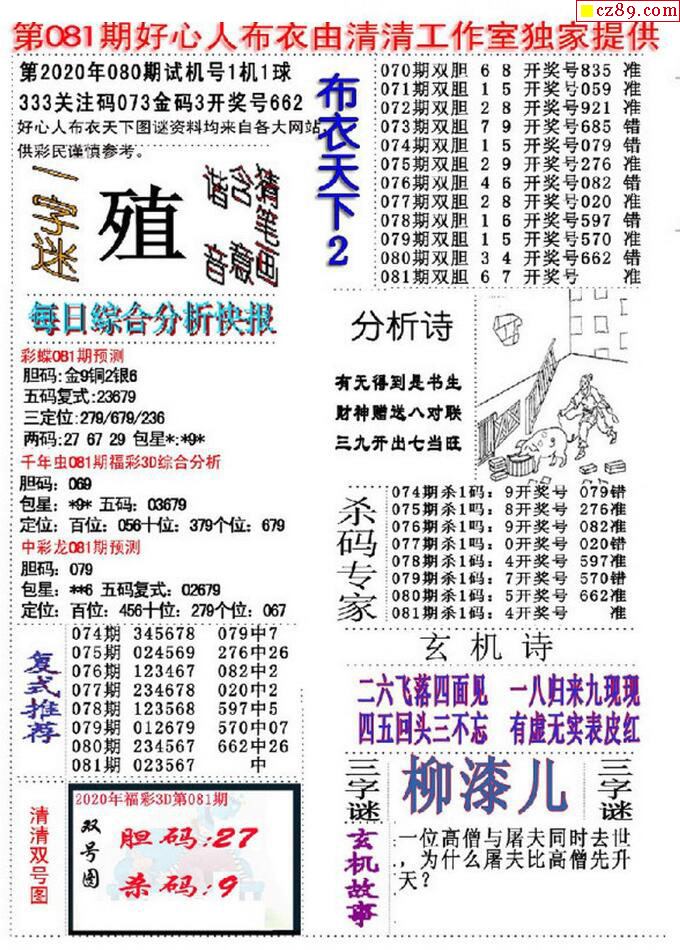 cz89.com
第081期好心人布衣由清清工作室独家提供
第2020年080期试机号1机1球
333关注码073金码3开奖号662
好心人布衣天下图谜资料均来自各大网站,
供彩民谨慎参考。
一字迷
殖
谐音
含意
猜笔画
每日综合分析快报
彩蝶081期预测
胆码:金9铜2银6
五码复式:23679
三定位:279/679/236
两码:27 67 29 包星*:*9*
千年虫081期福彩3D综合分析
胆码: 069
包星: *9* 五码: 03679
定位: 百位: 056十位: 379个位: 679
中彩龙081期预测
胆码: 079
包星: **6 五码复式: 02679
定位: 百位: 456十位: 279个位: 067
复式推荐
074期 345678 079中7
075期 024569 276中26
076期 123467 082中2
077期 234678 020中2
078期 123568 597中5
079期 012679 570中07
080期 234567 662中26
081期 023567 中
清清双号图
2020年福彩3D第081期
双号图
胆码:27
杀码:9
布衣天下2
070期双胆 6 8 开奖号835 准
071期双胆 1 5 开奖号059 准
072期双胆 2 8 开奖号921 准
073期双胆 7 9 开奖号685 错
074期双胆 1 5 开奖号079 错
075期双胆 2 9 开奖号276 准
076期双胆 4 6 开奖号082 错
077期双胆 2 8 开奖号020 准
078期双胆 1 6 开奖号597 错
079期双胆 1 5 开奖号570 准
080期双胆 3 4 开奖号662 错
081期双胆 6 7 开奖号 准
分析诗
有无得到是书生
财神赠送八对联
三九开出七当旺
杀码专家
074期杀1码: 9开奖号 079错
075期杀1吗: 8开奖号 276准
076期杀1吗: 9开奖号 082准
077期杀1码: 0开奖号 020错
078期杀1码: 4开奖号 597准
079期杀1码: 7开奖号 570错
080期杀1码: 5开奖号 662准
081期杀1码: 4开奖号 准
玄机诗
二六飞落四面见 一八归来九现现
四五回头三不忘 有虚无实表皮红
三字谜
柳漆儿
三字谜
玄机故事
一位高僧与屠夫同时去世
，为什么屠夫比高僧先升
天？